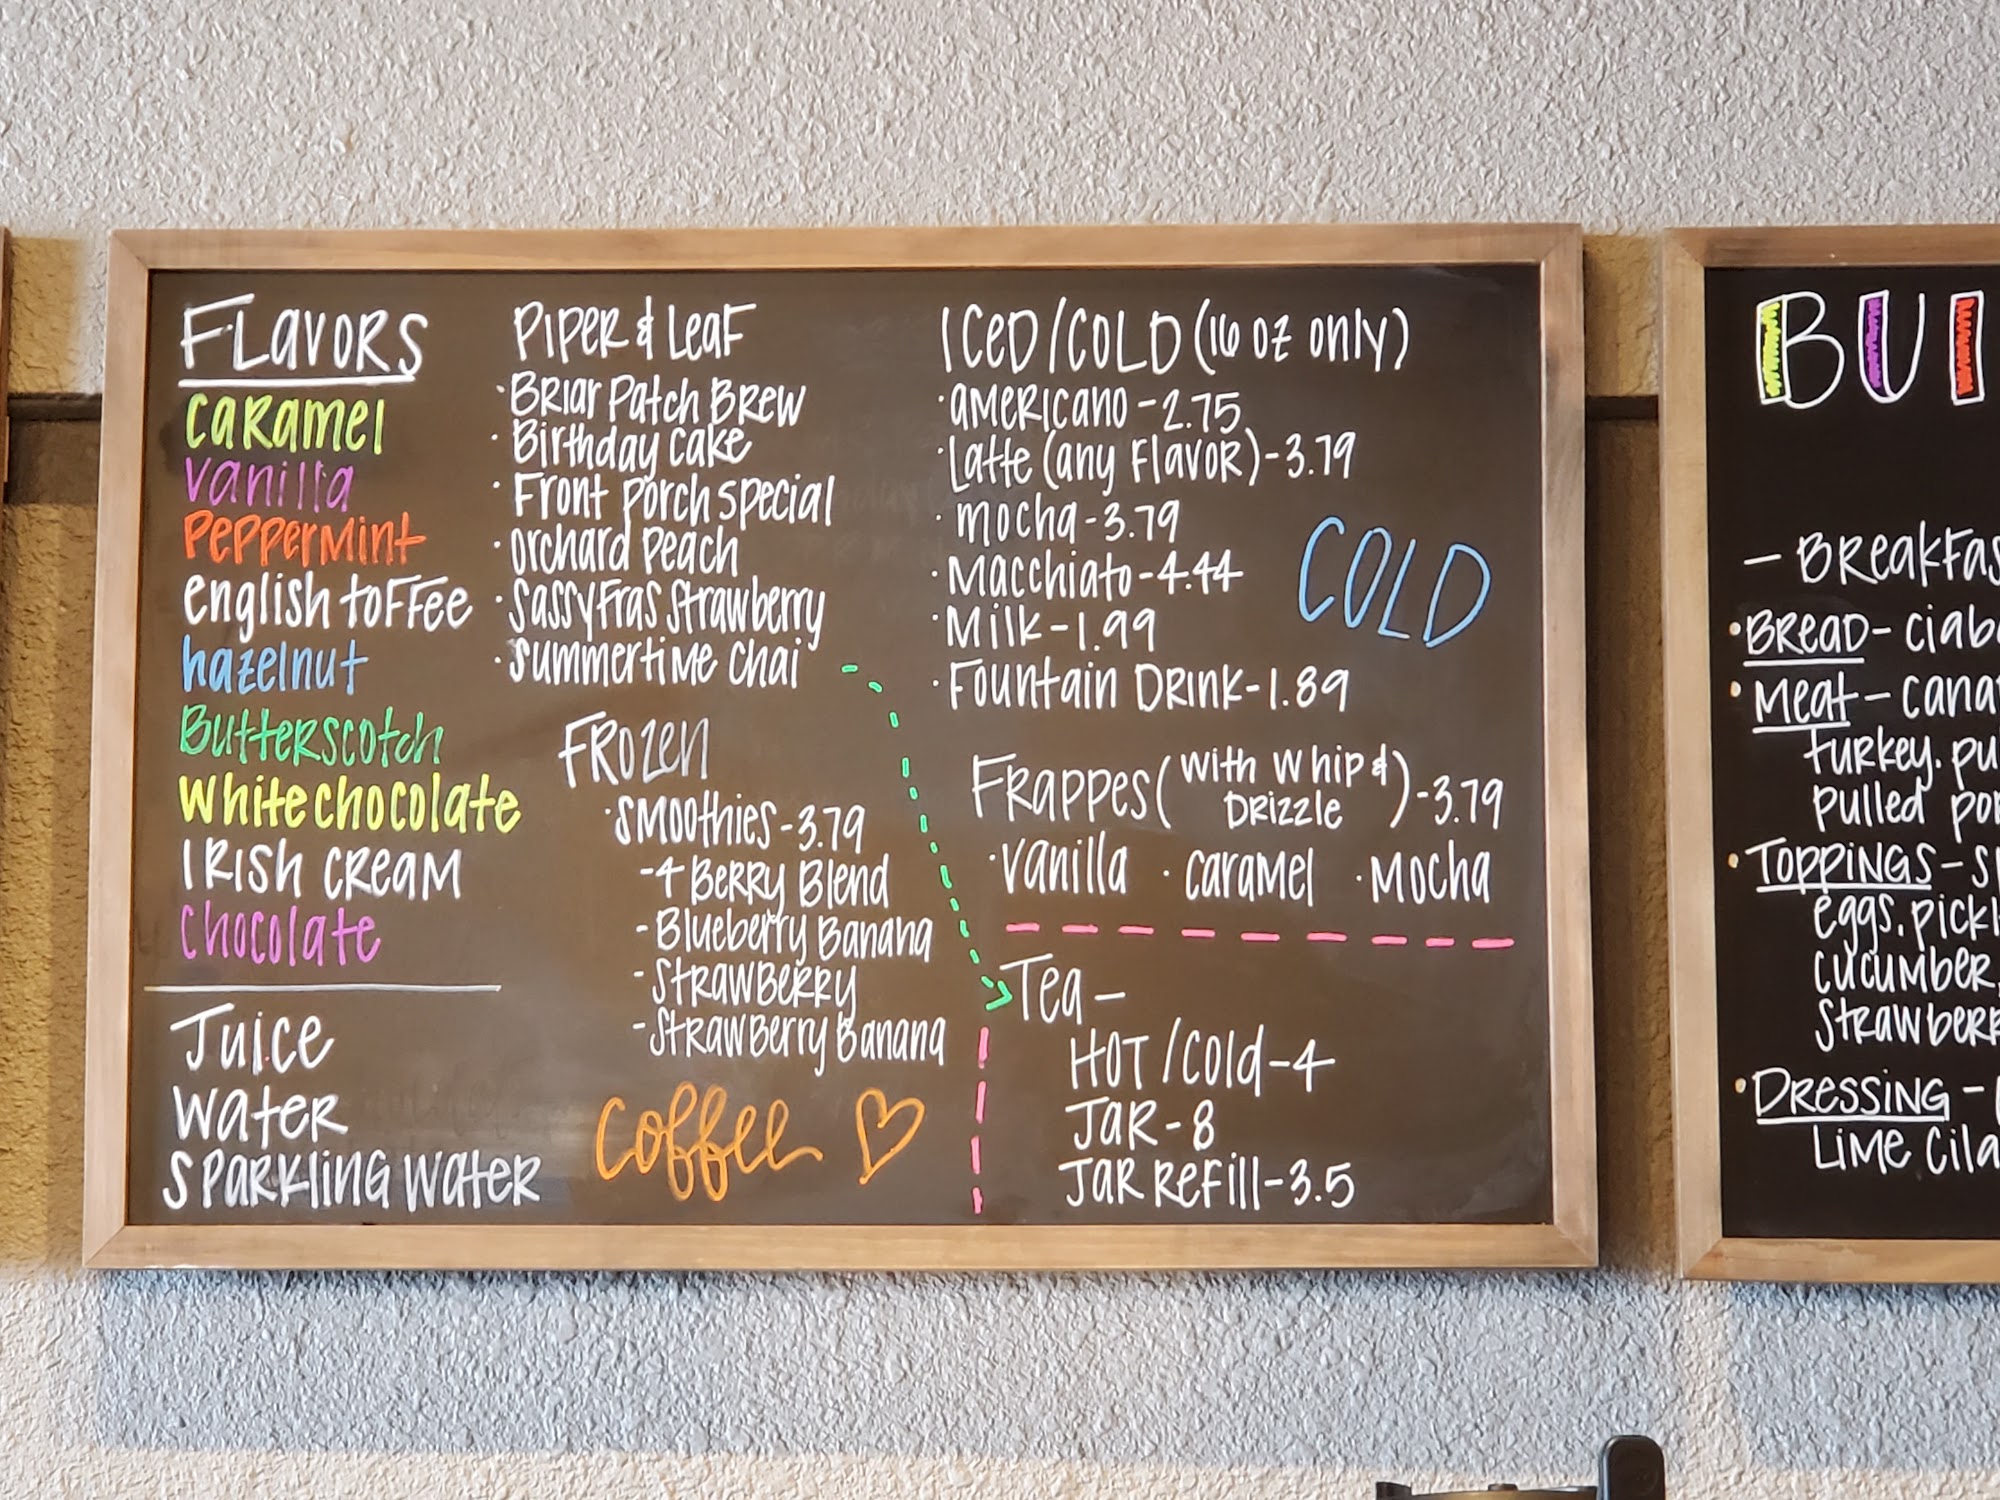 FLavoRS
CaRamel
Vanilla
PePPerMint
english toFFee
hazelnut
Butterscotch
White chocolate
IRISH CREAM
Chocolate
Juice
Water
SPaRkling Water
PiPER & LeaF
·BRiar Patch BREW
·Birthday Cake
·Front Porch Special
·Orchard Peach
·SassyFras Strawberry
·SummertiMe Chai
FROzen
·SMoothies-3.79
-4 BeRRy Blend
-Blueberry Banana
-StRaWBeRRy
-StrawBerry Banana
Coffee
ICeD/COLD (16 oz only)
·aMeRicano-2.75
·Latte (any FlavoR)-3.79
·Mocha-3.79
·Macchiato-4.44
·Milk-1.99
·Fountain DRink-1.89
COLD
FRappes (With Whip &
DRizzle)-3.79
·Vanilla ·CaraMel ·Mocha
Tea-
HOT/Cold-4
JaR-8
JaR ReFill-3.5
BUI
- BReakFas
·BReaD- Ciab
·Meat- Cana
turkey. pu
pulled po
·TOPPINGS- S
eggs. pick
cucumber,
Strawberr
·DRESSING-
LiMe Cila